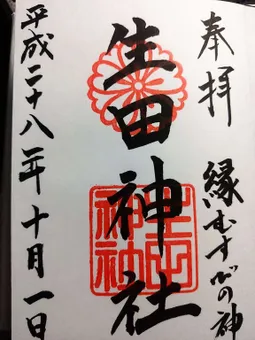 奉拝 縁むすびの神
生田神社
平成二十八年十月一日